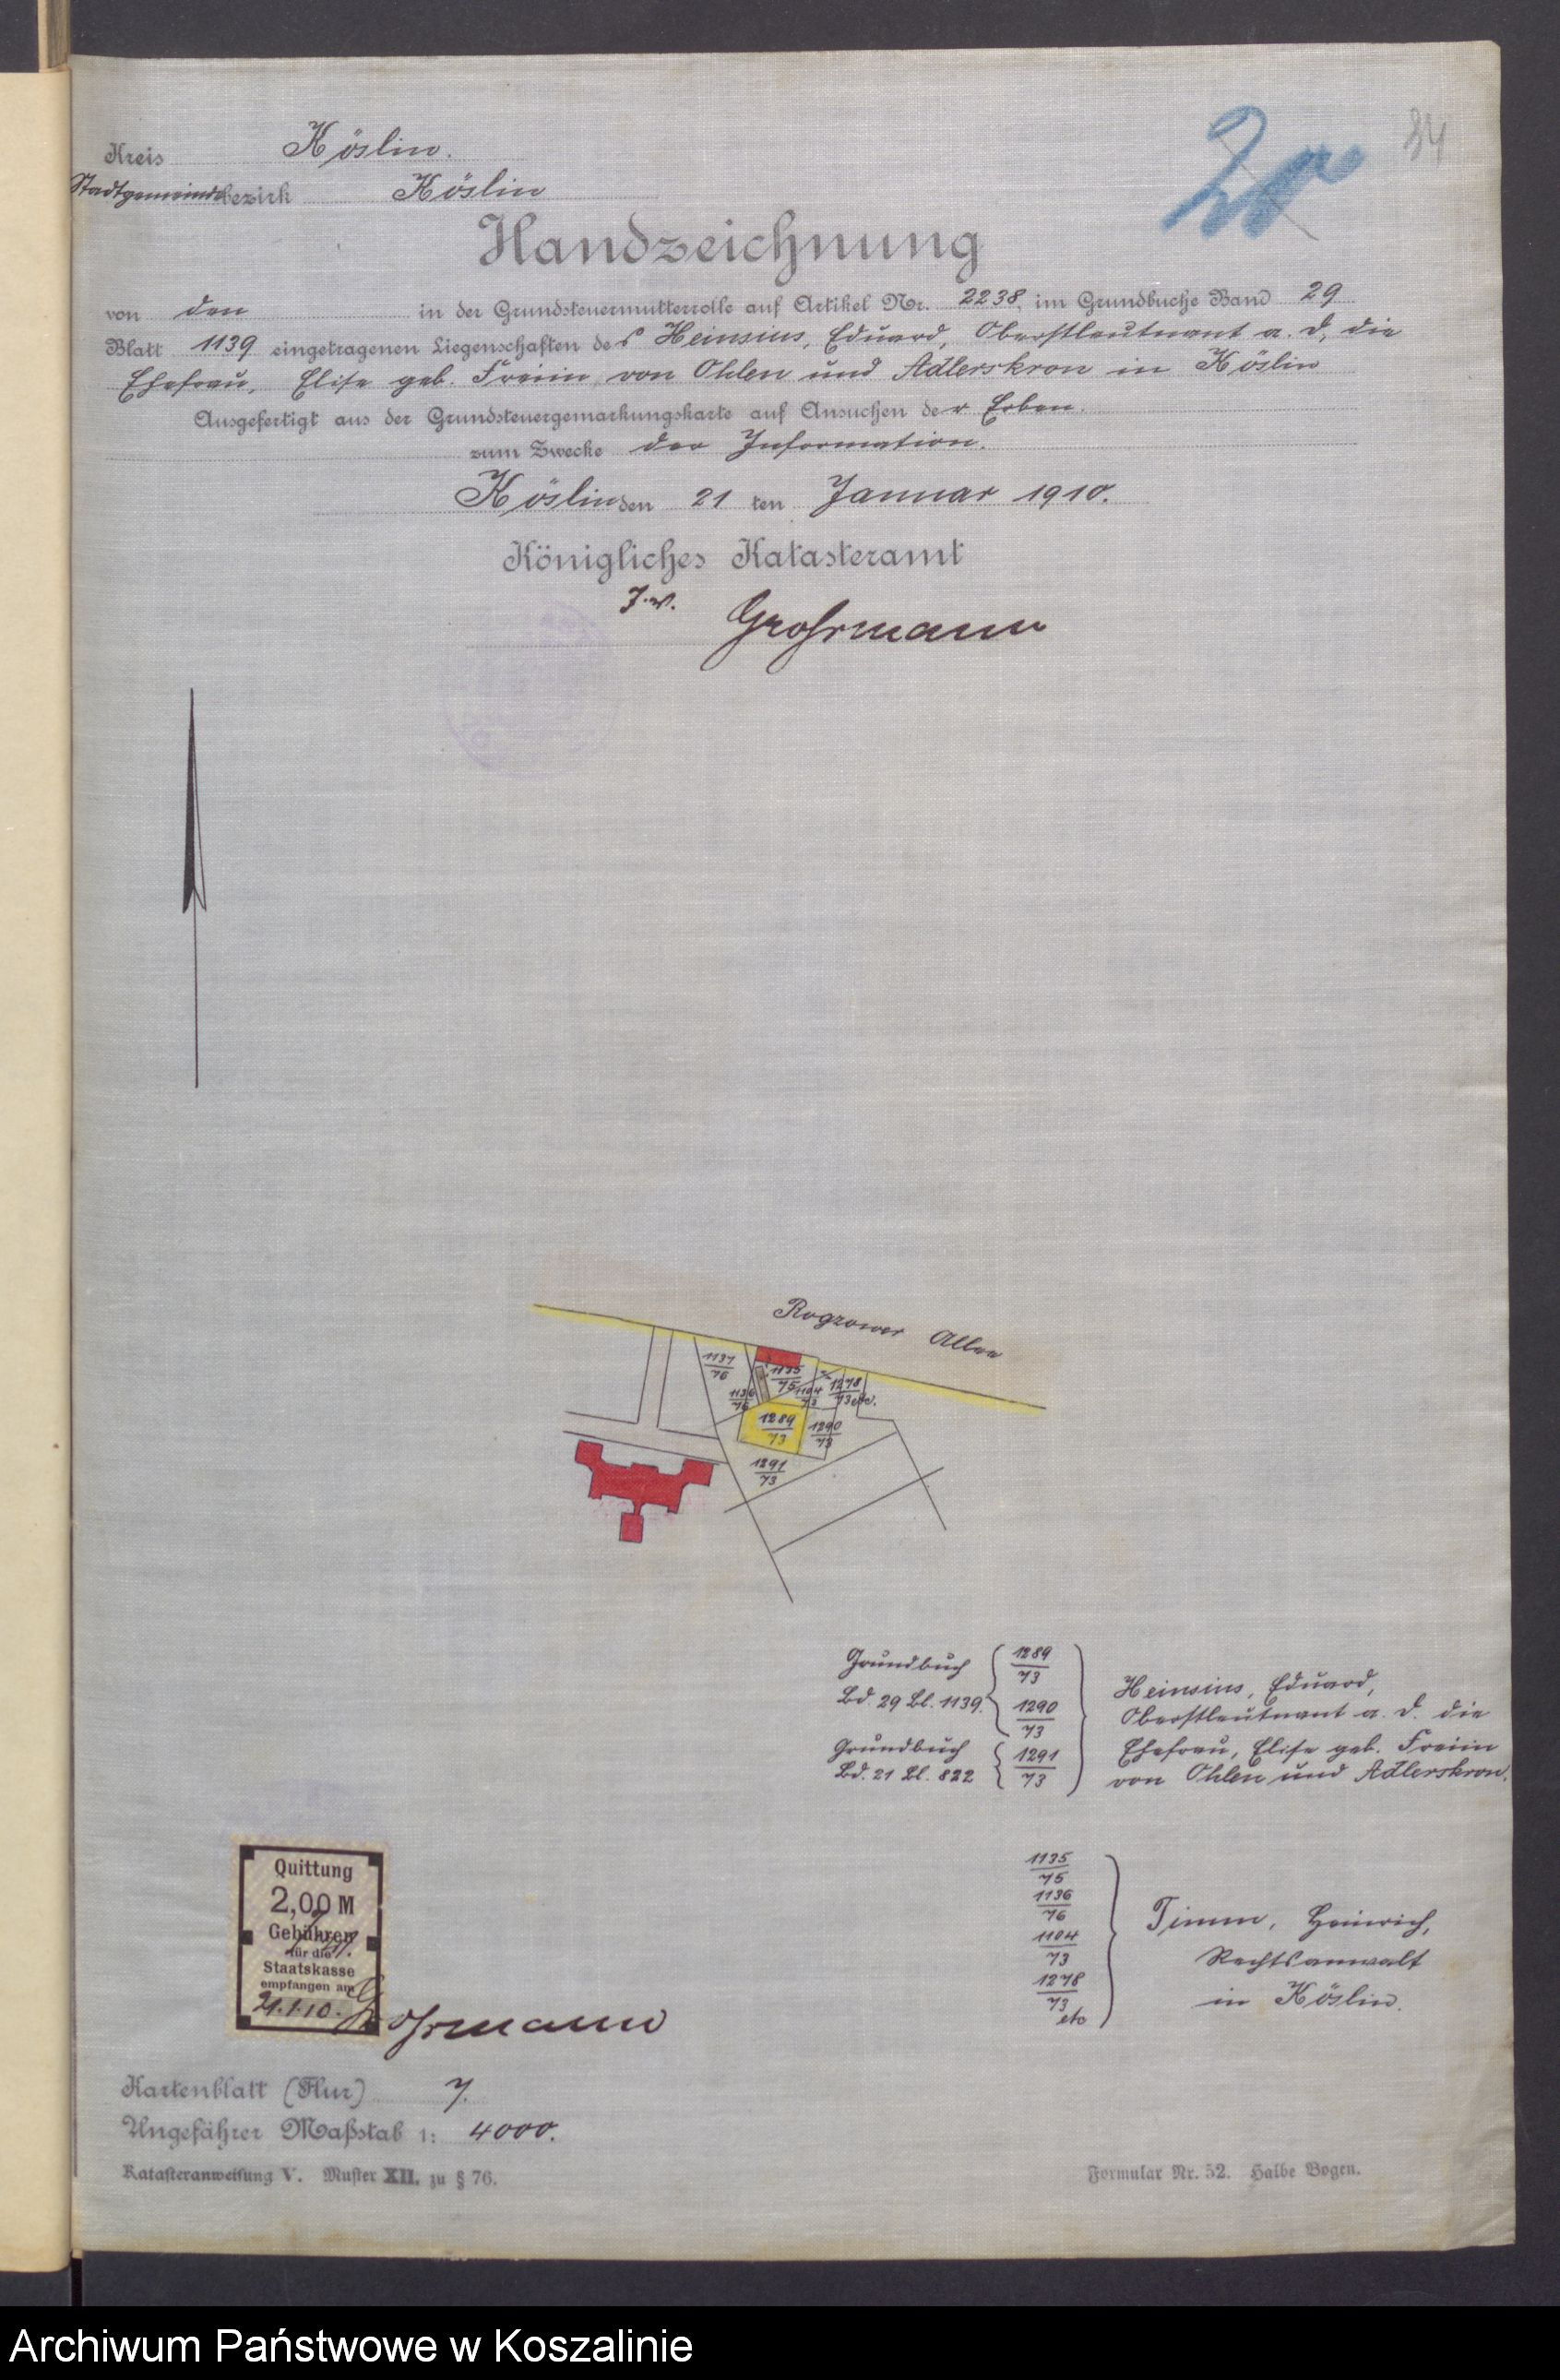 84
Kreis Köslin.
Stadtgemeindebezirk Köslin
Handzeichnung
von den in der Grundsteuermutterrolle auf Artikel Nr. 2238, im Grundbuche Band 29
Blatt 1139 eingetragenen Liegenschaften des Heinsius, Eduard, Oberstleutnant a. D., die
Ehefrau, Elise geb. Freiin von Ohlen und Adlerskron in Köslin
Ausgefertigt aus der Grundsteuergemarkungskarte auf Ansuchen der Erben.
zum Zwecke der Information.
Köslin den 21 ten Januar 1910.
Königliches Katasteramt
J. V. Grohrmann
Rogzower Allee
1137/76
1135/75
1136/76
1104/73
1278/73 etc.
1289/73
1290/73
1291/73
Grundbuch
Bd. 29 Bl. 1139.
1289/73
1290/73
Grundbuch
Bd. 21 Bl. 822
1291/73
Heinsius, Eduard,
Oberstleutnant a. D. die
Ehefrau, Elise geb. Freiin
von Ohlen und Adlerskron.
1135/75
1136/76
1104/73
1278/73 etc
Timm, Heinrich,
Rechtsanwalt
in Köslin.
Quittung
2,00 M
Gebühren
für die
Staatskasse
empfangen am
21.1.10.
Grohrmann
Kartenblatt (Flur) 7.
Ungefährer Maßstab 1: 4000.
Katasteranweisung V. Muster XII. zu § 76.
Formular Nr. 52. Halbe Bogen.
Archiwum Państwowe w Koszalinie